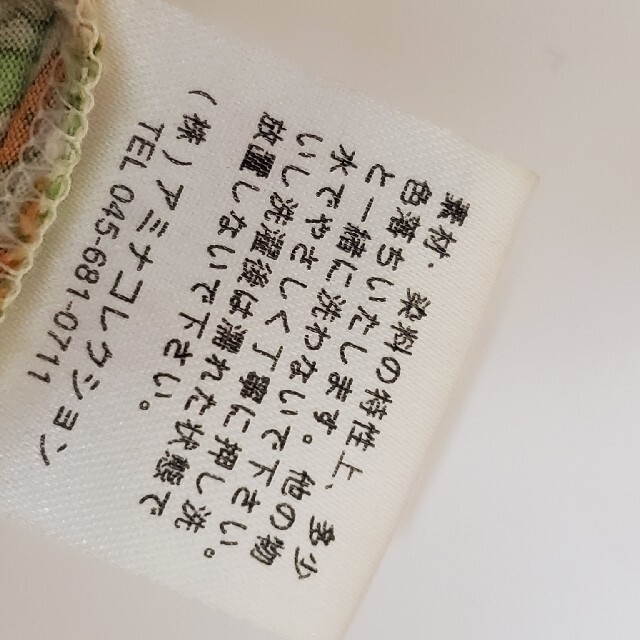 素材、染料の特性上、多少
色落ちいたします。他の物
と一緒に洗わないで下さい。
水でやさしく丁寧に押し洗
いし洗濯後は濡れた状態で
放置しないで下さい。
(株)アミナコレクション
TEL 045-681-0711